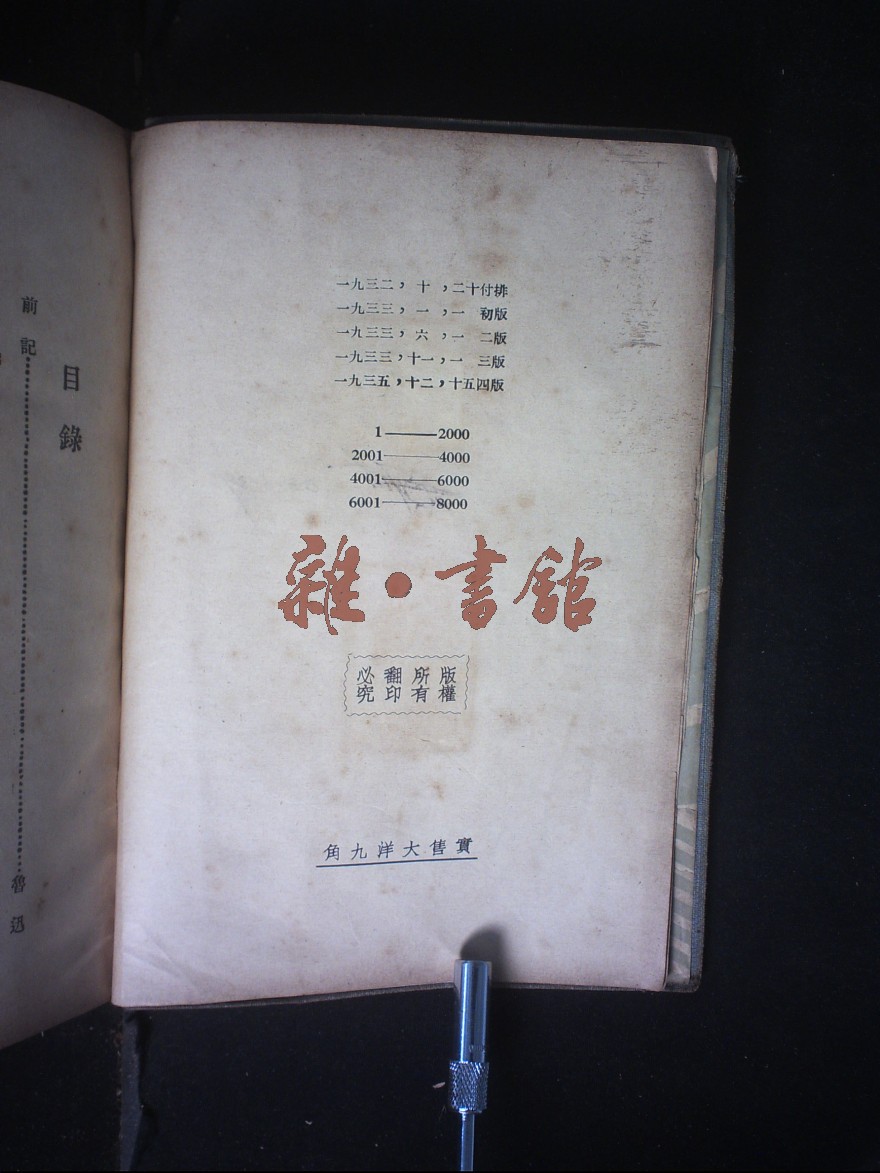 一九三二,十,二十付排
一九三三,一,一 初版
一九三三,六,一 二版
一九三三,十一,一 三版
一九三五,十二,十五四版
1———2000
2001———4000
4001———6000
6001———8000
雜·書館
版權
所有
翻印
必究
實售大洋九角
目錄
前記……魯迅